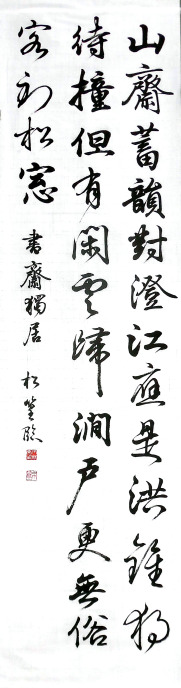 山齋蓄韻對澄江應是洪鍾猶
待撞但有閑雲歸澗戶更無俗
客到松窓 書齋獨居 松篁臨